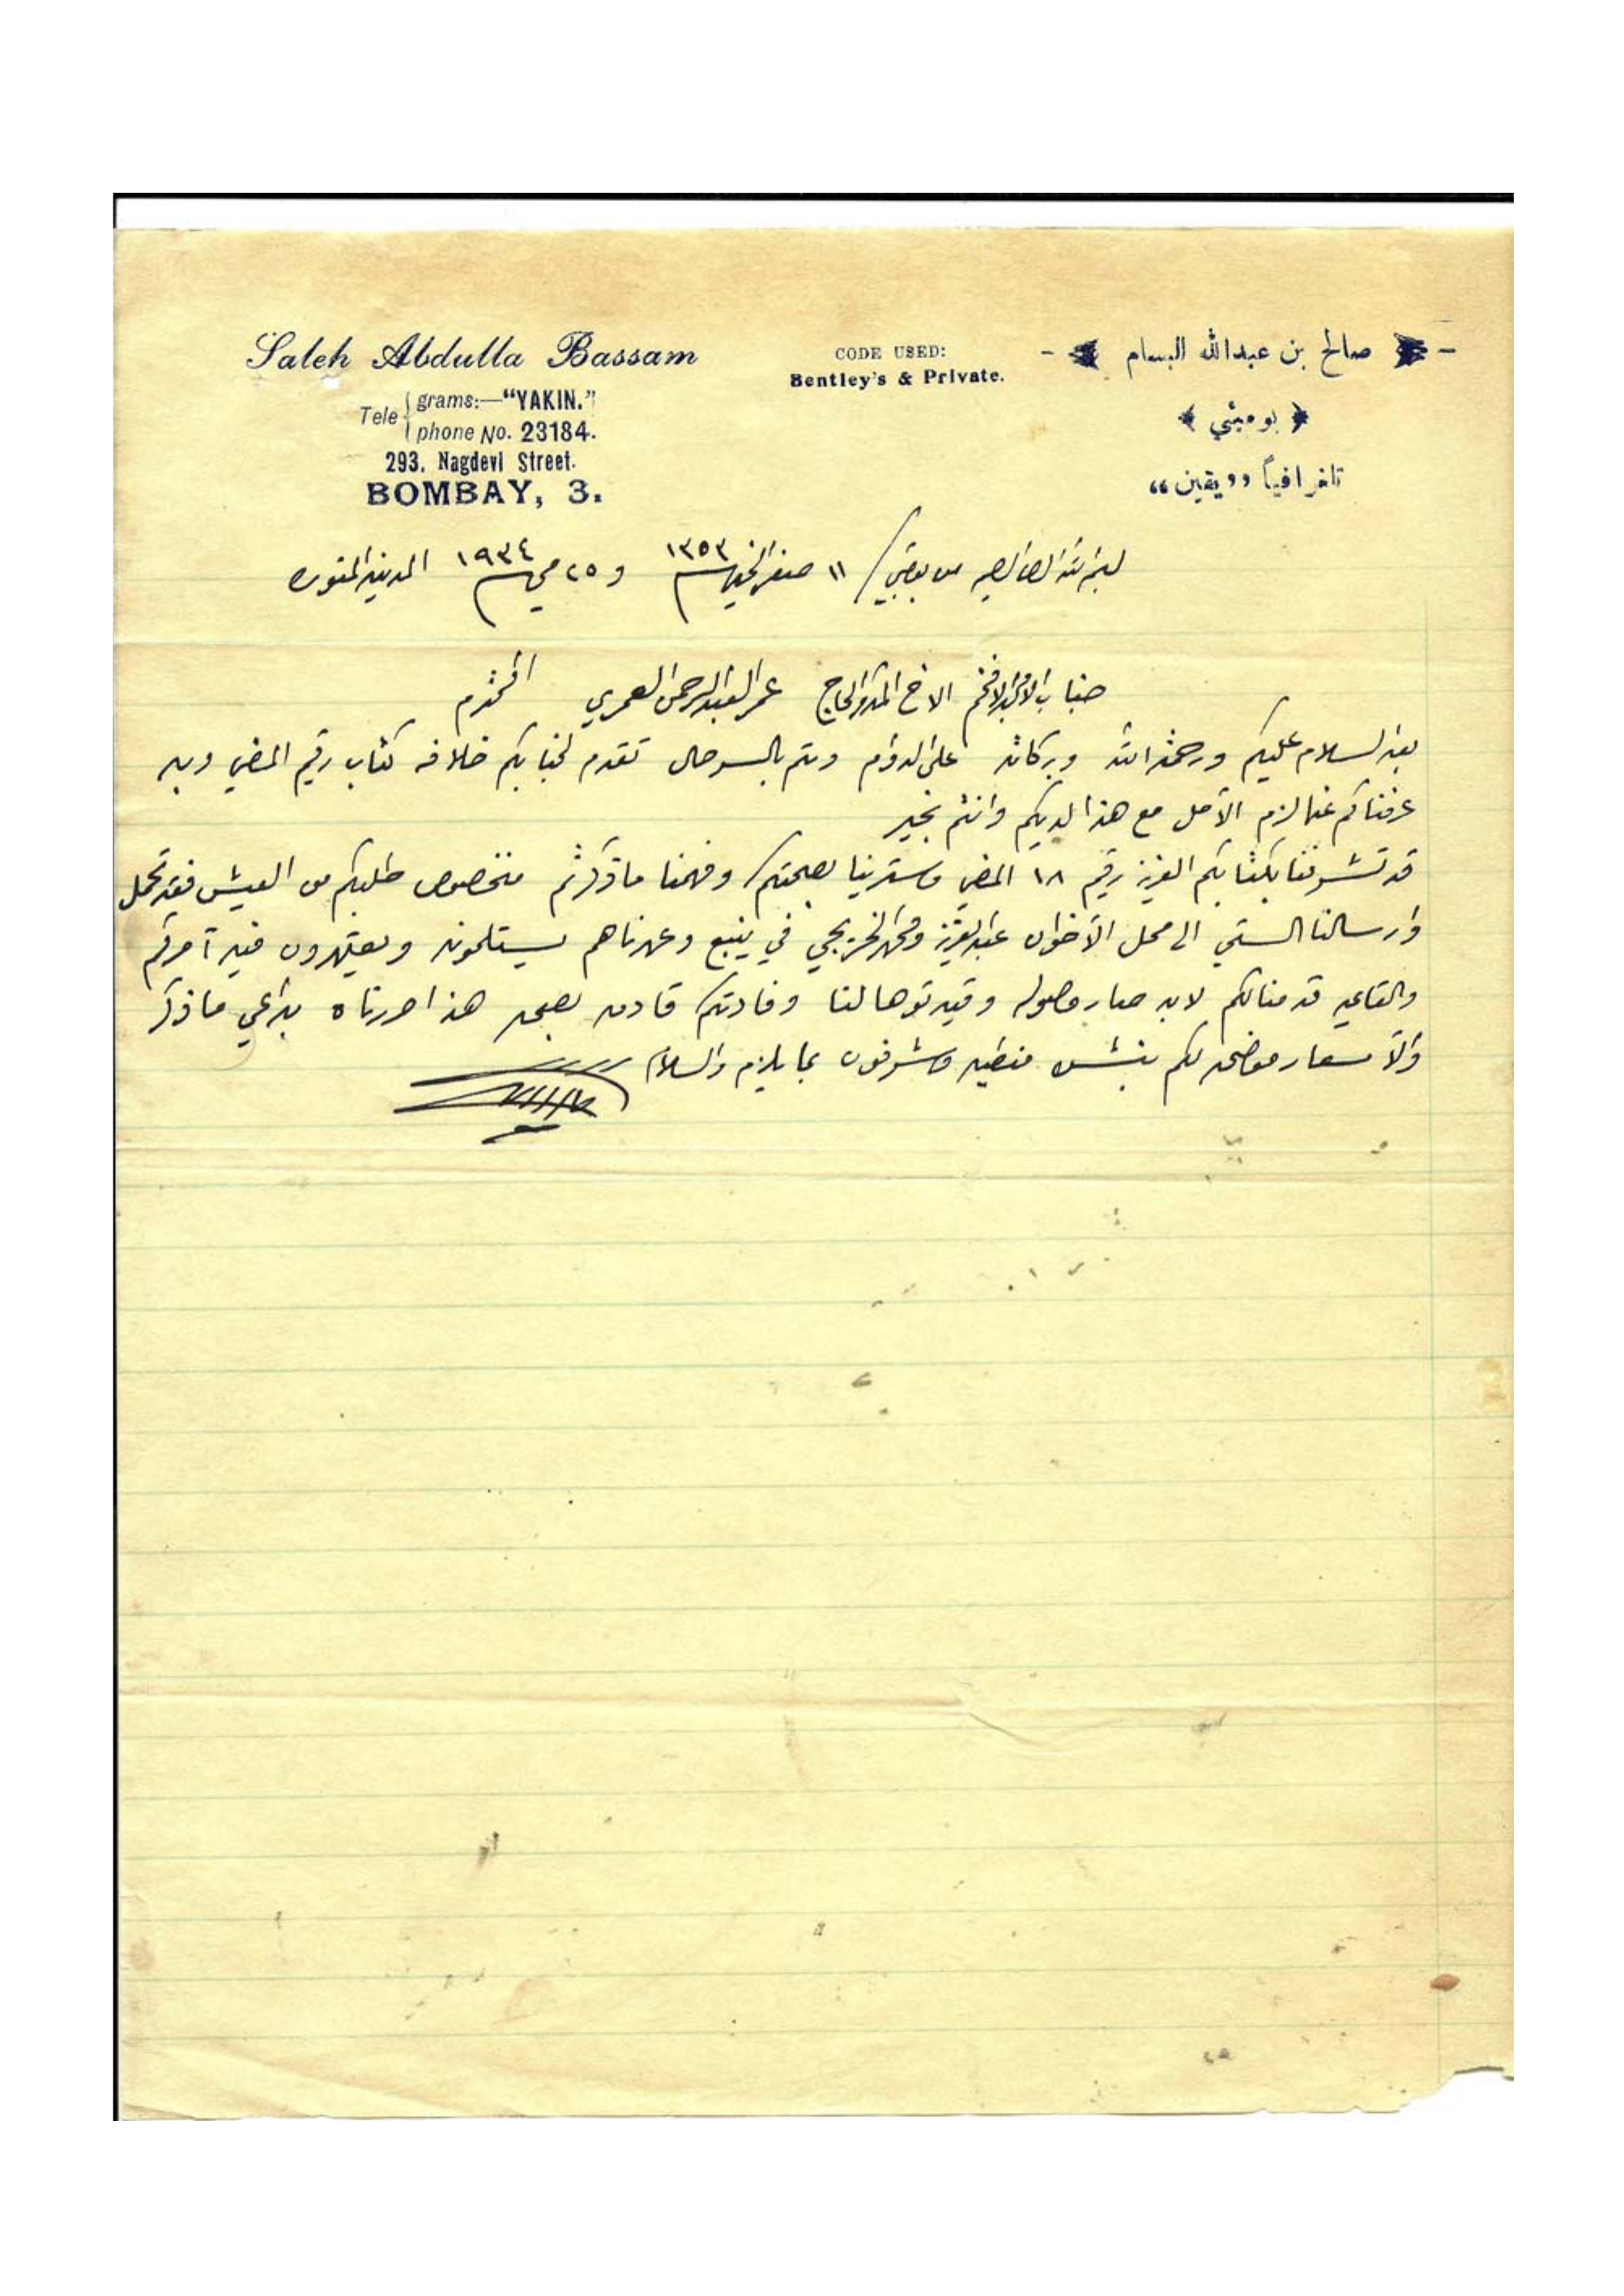 Saleh Abdulla Bassam
Tele grams:—"YAKIN."
phone No. 23184.
293, Nagdevi Street.
BOMBAY, 3.
CODE USED:
Bentley's & Private.
صالح بن عبدالله البسام
بومبئي
تلغرافياً „يقين“
من بمبي / ١١ صفر الخير ١٣٥٣ و ٢٥ مي ١٩٣٤ المدينة المنوره
جناب الافخم الاخ المكرم الحاج عمر العبدالرحمن العمري المحترم
بعد السلام عليكم ورحمة الله وبركاته على الدوام تقدم لجنابكم خلافه كتاب رقيم المضي وبه
عرفناكم عما لزم الآمل مع هذا لديكم وانتم بخير
قد تشرفنا بكتابكم العزيز رقيم ١٨ المضي وسرينا بصحتكم وفهمنا ما ذكرتم مخصوص طلبكم من العيش فقد تحمل
وارسالنا الستي الى محل الأخوان عبدالعزيز ومحمد الخريجي في ينبع وعرفناهم يستلمونه ويعتمدون فيه آمركم
قدمنا لكم لابد صار وصوله وقيدتوها لنا هذا حررناه ما ذكر
والأسعار موضحه لكم وشرفون بما يلزم والسلام